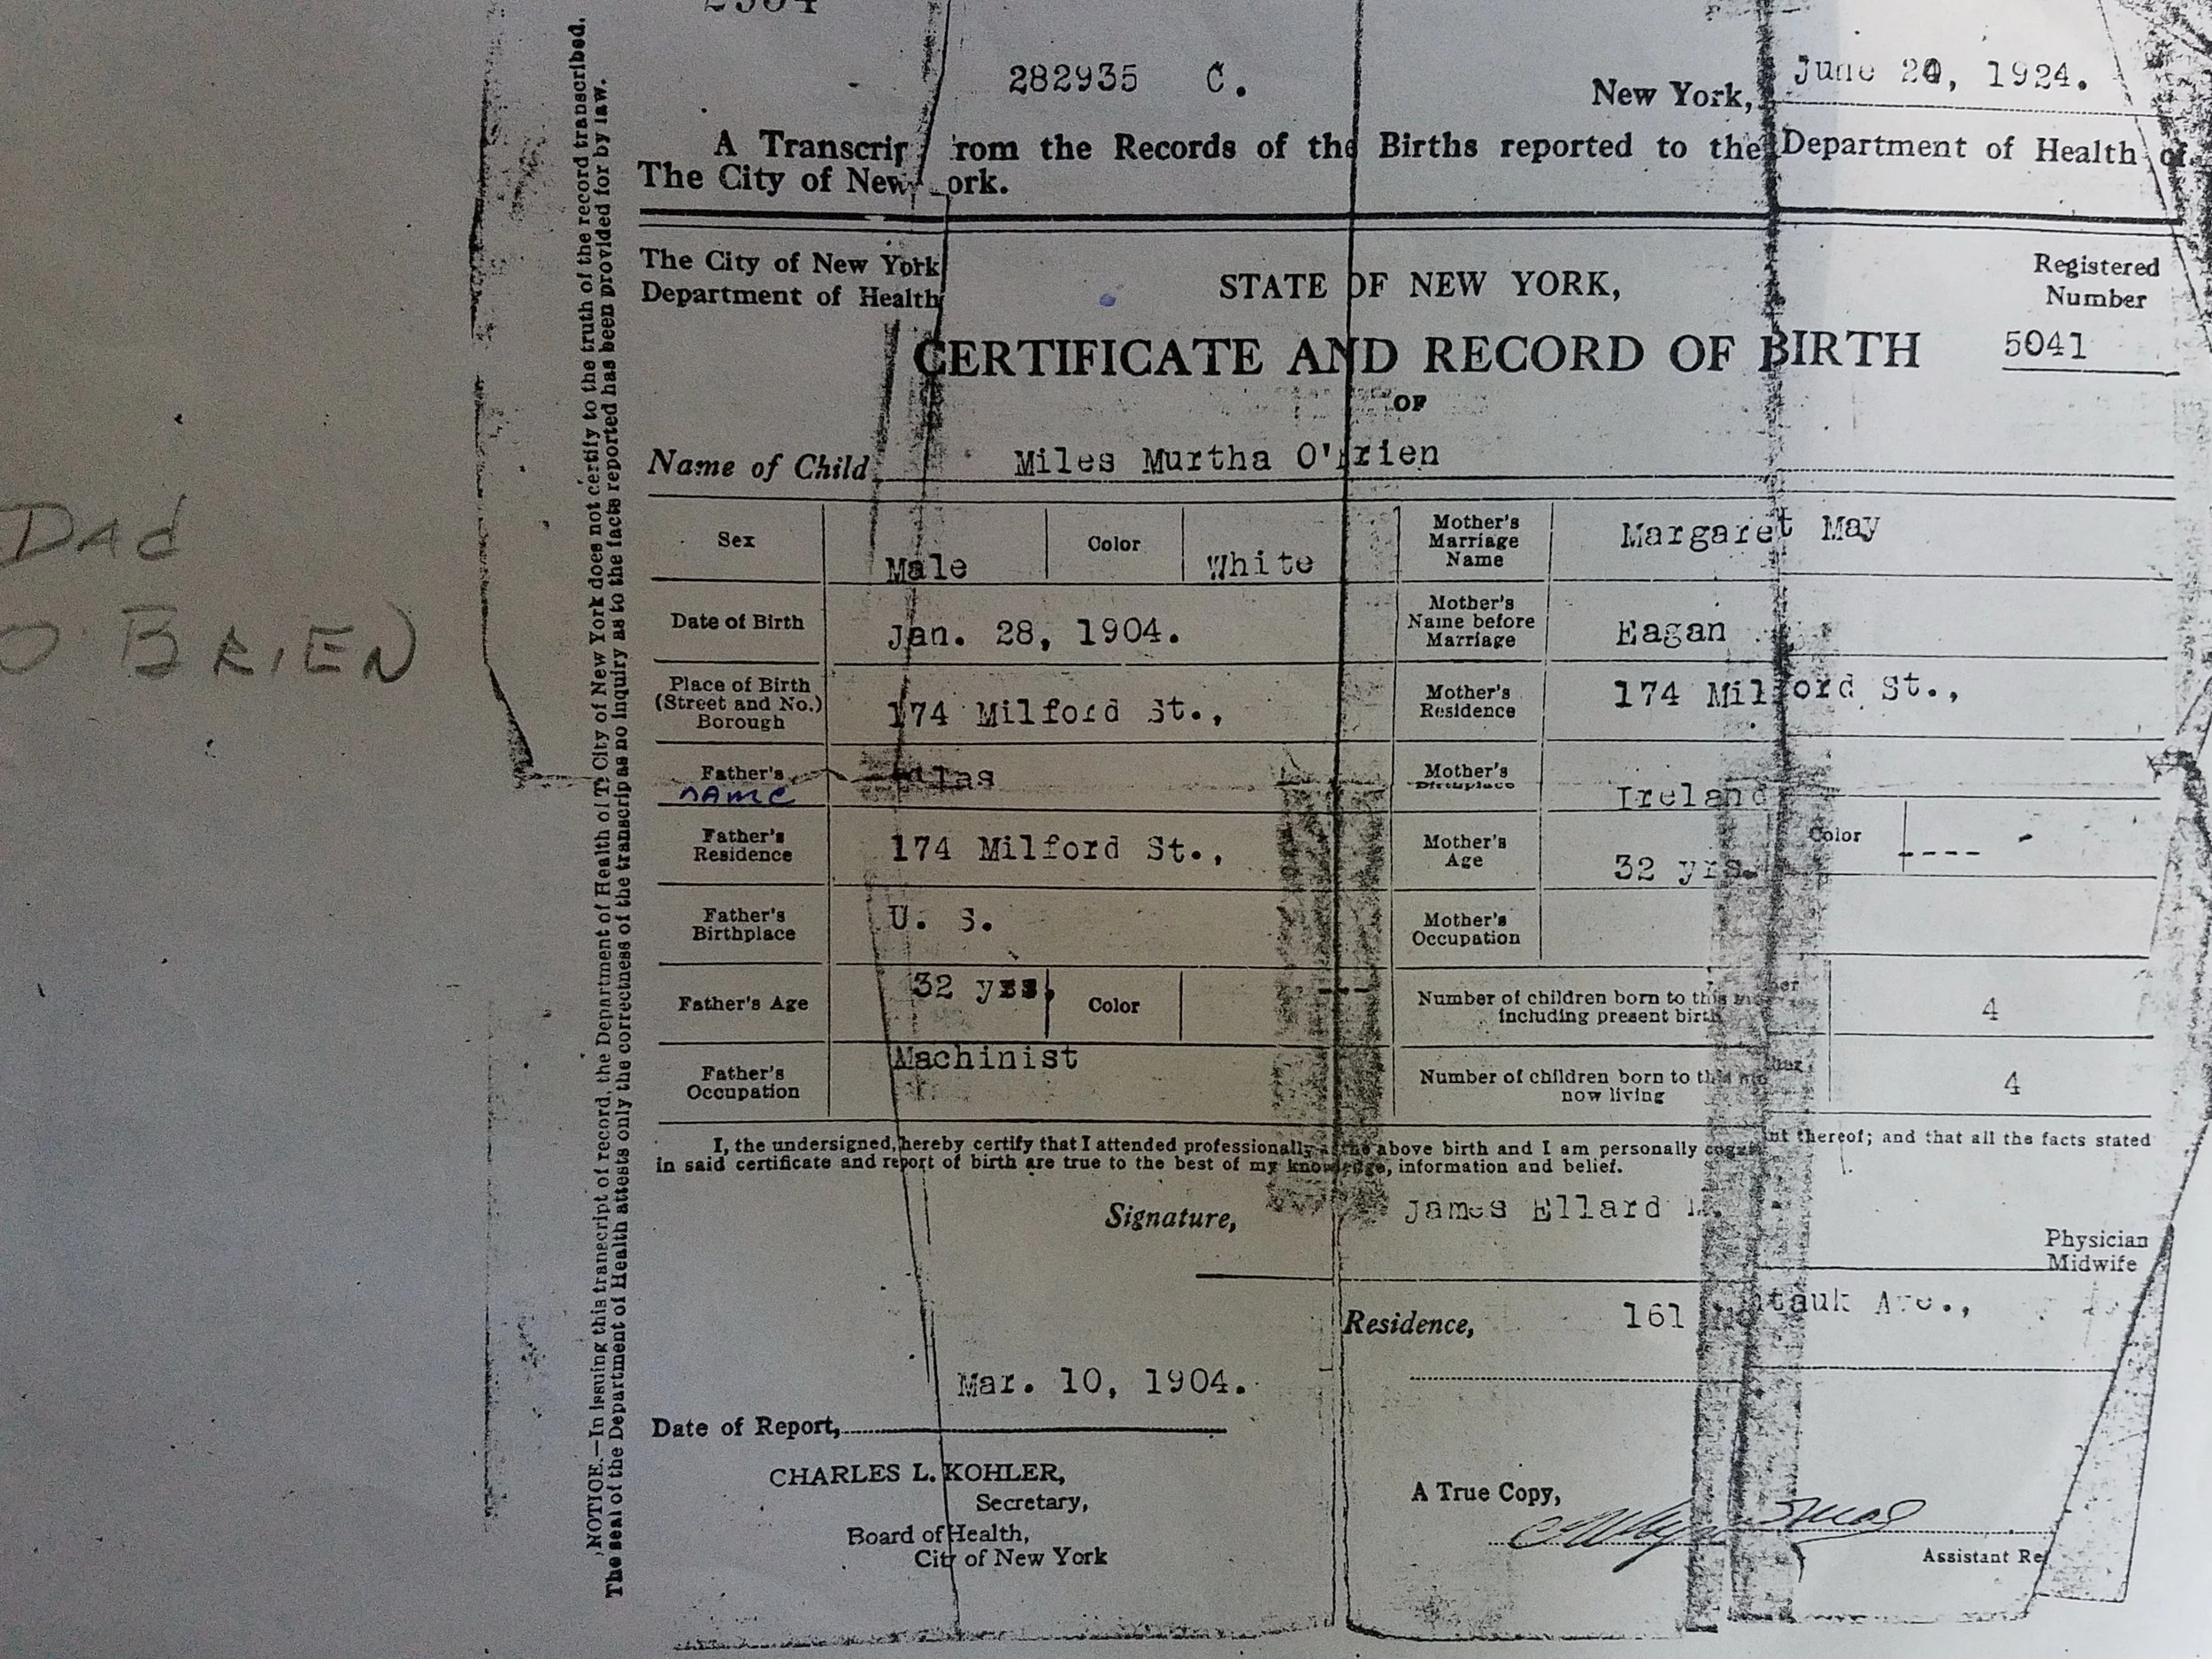 282935 C.
New York, June 20, 1924.
A Transcrip rom the Records of the Births reported to the Department of Health of
The City of New ork.
The City of New York
Department of Health
STATE OF NEW YORK,
Registered
Number
CERTIFICATE AND RECORD OF BIRTH 5041
OF
Name of Child Miles Murtha O'Brien
Sex Male Color White
Mother's Marriage Name Margaret May
Date of Birth Jan. 28, 1904.
Mother's Name before Marriage Eagan
Place of Birth (Street and No.) Borough 174 Milford St.,
Mother's Residence 174 Milford St.,
Father's name
Mother's Birthplace Ireland
Father's Residence 174 Milford St.,
Mother's Age 32 yrs. Color ----
Father's Birthplace U. S.
Mother's Occupation
Father's Age 32 yrs. Color ---
Number of children born to this mother including present birth 4
Father's Occupation Machinist
Number of children born to this mother now living 4
I, the undersigned, hereby certify that I attended professionally at the above birth and I am personally thereof; and that all the facts stated
in said certificate and report of birth are true to the best of my knowledge, information and belief.
Signature, James Ellard
Physician
Midwife
Residence, 161 Montauk Ave.,
Mar. 10, 1904.
Date of Report,
CHARLES L. KOHLER,
Secretary,
Board of Health,
City of New York
A True Copy,
Assistant Re
NOTICE.—In issuing this transcript of record, the Department of Health of The City of New York does not certify to the truth of the record transcribed.
The seal of the Department of Health attests only the correctness of the transcript as no inquiry as to the facts reported has been provided for by law.
DAd
O BRIEN